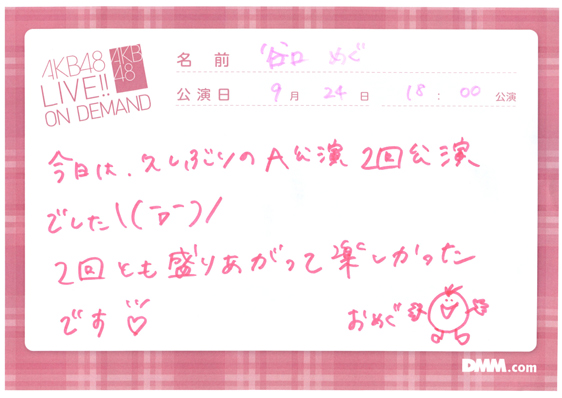 AKB48
LIVE!!
ON DEMAND
AKB
48
名前 谷口 めぐ
公演日 9月 24日 18:00 公演
今日は、久しぶりのA公演 2回公演
でした\(ーー)/
2回とも盛りあがって楽しかった
です♡
おめぐ
DMM.com